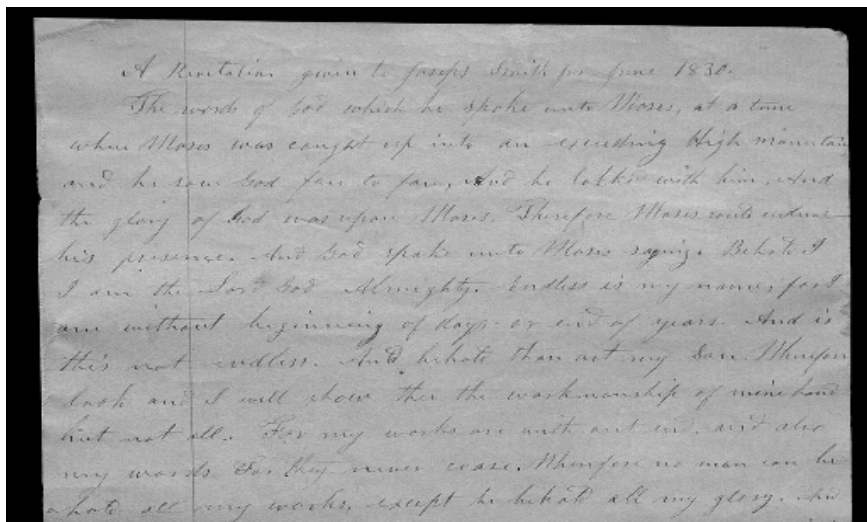 A Revelation given to Joseph Smith jr June 1830.
The words of God which he spoke unto Moses, at a time
when Moses was caught up into an exceeding High mountain
and he saw God face to face, And he talked with him, And
the glory of God was upon Moses. Therefore Moses could endure
his presence. And God spake unto Moses saying. Behold I
I am the Lord God Almighty. Endless is my name, for I
am without beginning of days or end of years. And is
this not endless. And behold thou art my Son. Wherefore
look and I will show thee the workmanship of mine hand
but not all. For my works are with out end, and also
my words For they never cease. Wherefore no man can be
hold all my works, except he behold all my glory. And